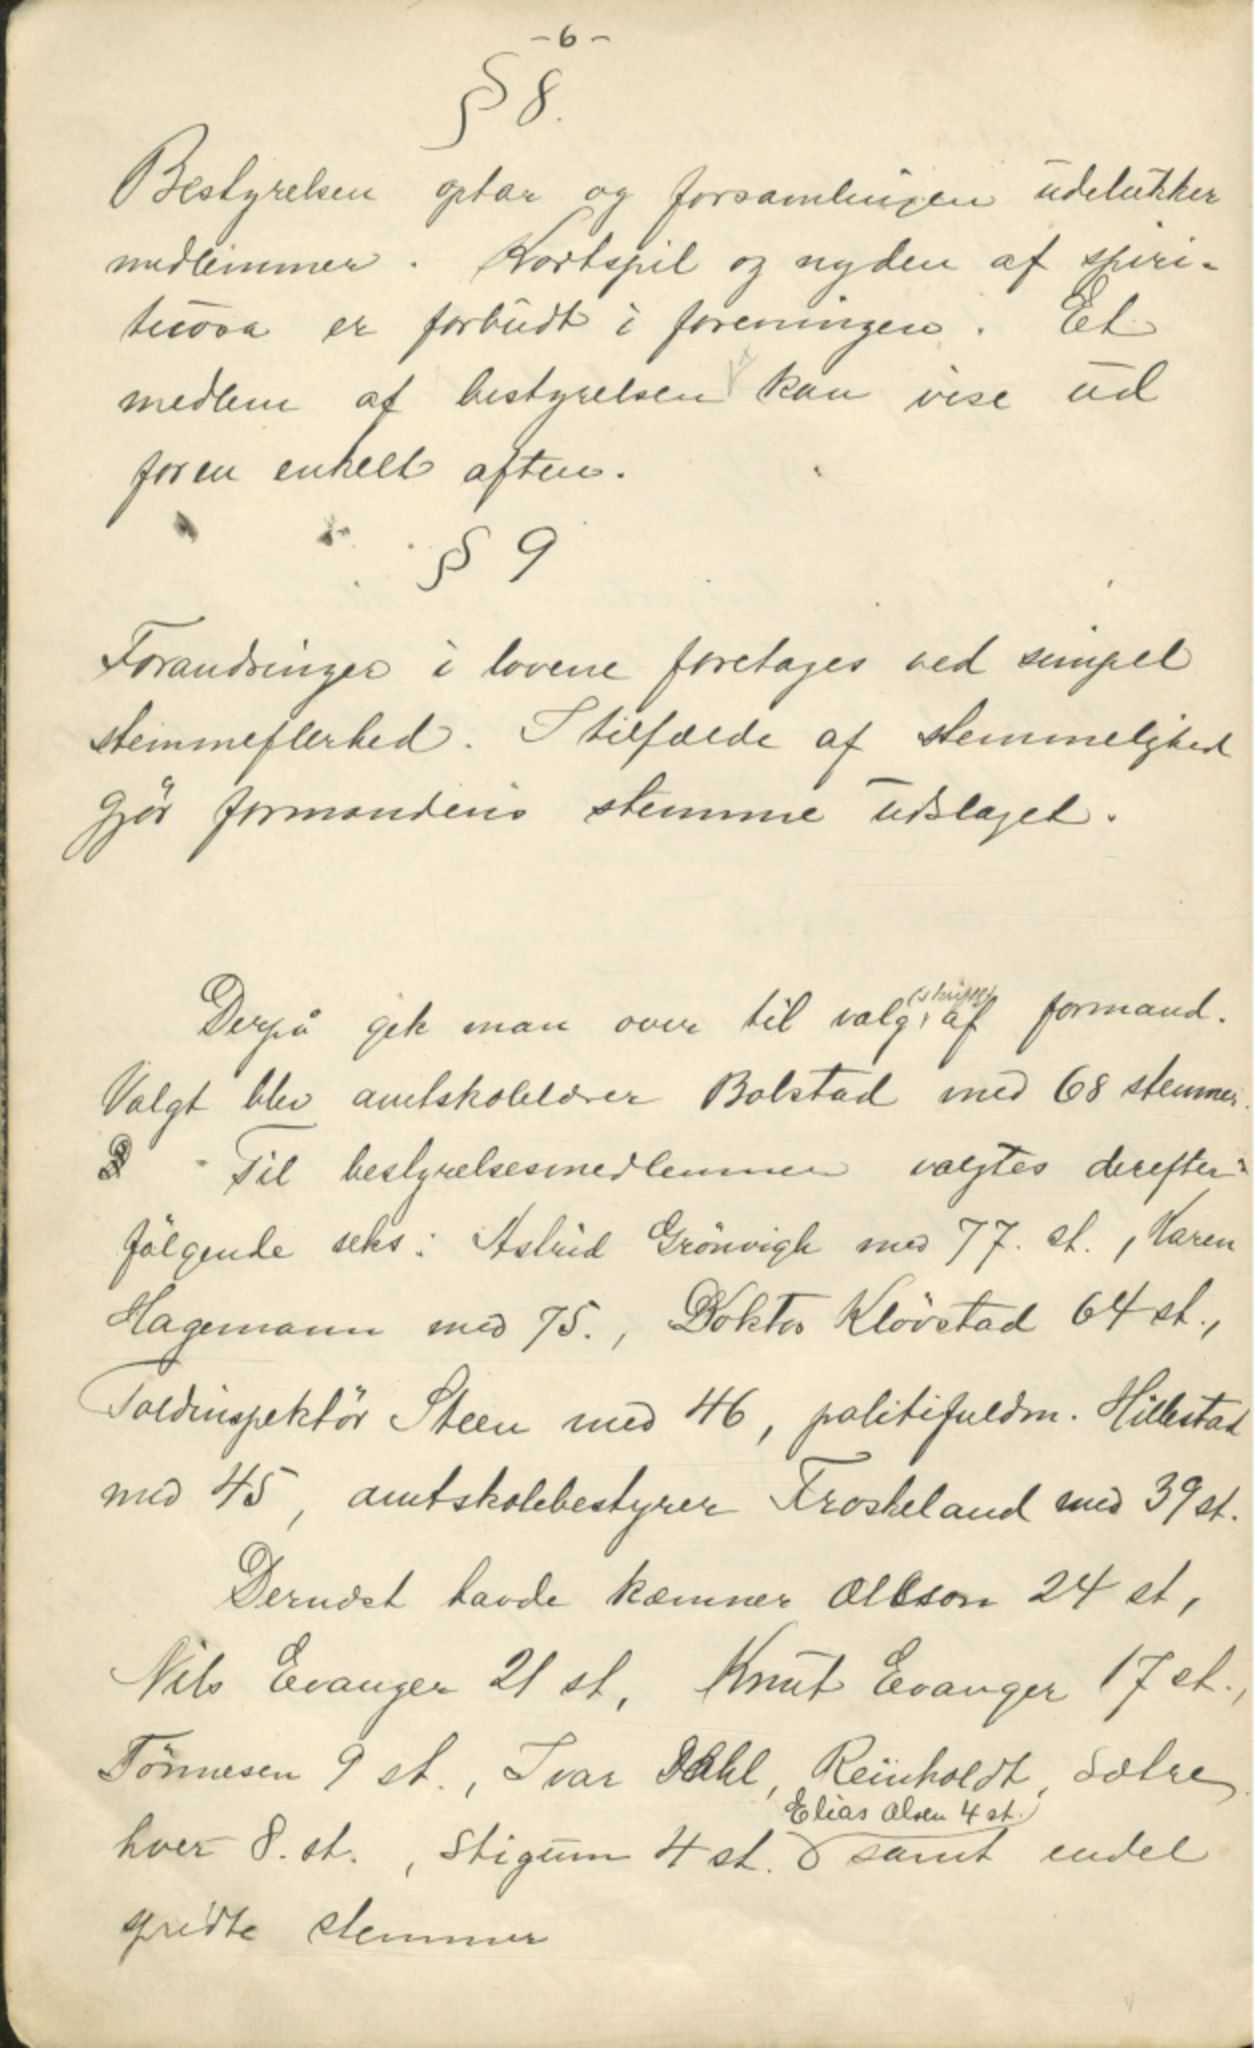 -6-
§ 8.
Bestyrelsen optar og forsamlingen udelukker
medlemmer. Kortspil og nyden af spiri-
tuosa er forbudt i foreningen. Et
medlem af bestyrelsen kan vise ud
for en enkelt aften.
§ 9
Forandringer i lovene foretages ved simpel
stemmeflerhed. I tilfælde af stemmelighed
gjør formandens stemme udslaget.
Derpå gik man over til valg (skriftl) af formand.
Valgt blev amtskolelærer Bolstad med 68 stemmer.
Til bestyrelsesmedlemmer valgtes derefter
følgende seks: Astrid Grönvigh med 77. st., Karen
Hagemann med 75., Doktor Klövstad 64 st.,
Toldinspektör Steen med 46, politifuldm. Hillestad
med 45, amtskolebestyrer Froskeland med 39 st.
Dernæst havde kæmner Ollson 24 st,
Nils Evanger 21 st, Knut Evanger 17 st.,
Tönnesen 9 st., Ivar Dahl, Reinholdt, Sætre
Elias Olsen 4 st.
hver 8. st., Stigum 4 st. samt endel
spridte stemmer